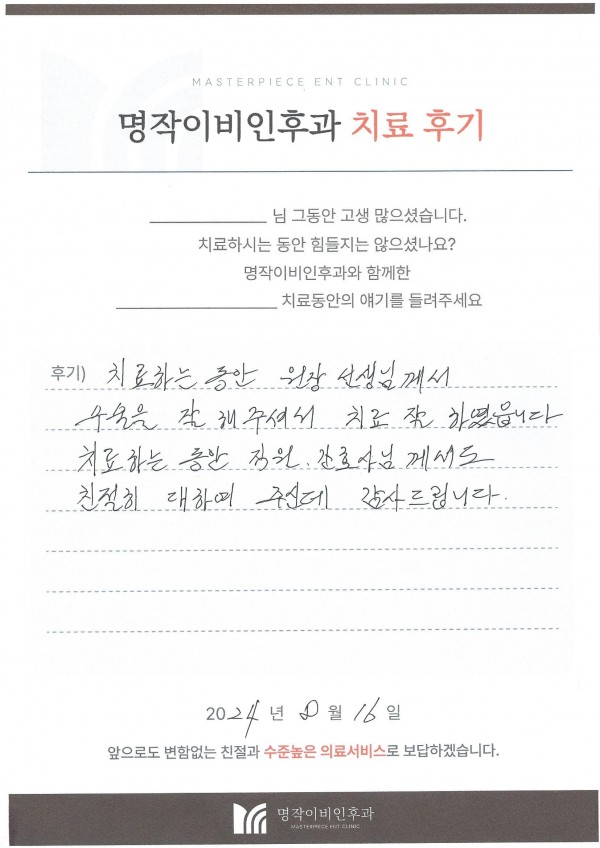 MASTERPIECE ENT CLINIC
명작이비인후과 치료 후기
님 그동안 고생 많으셨습니다.
치료하시는 동안 힘들지는 않으셨나요?
명작이비인후과와 함께한
치료동안의 얘기를 들려주세요
후기) 치료하는 동안 원장 선생님께서
수술을 잘 해주셔서 치료 잘 하였읍니다
치료하는 동안 직원. 간호사님께서도
친절히 대하여 주신데 감사드립니다.
2024년 8월 16일
앞으로도 변함없는 친절과 수준높은 의료서비스로 보답하겠습니다.
명작이비인후과
MASTERPIECE ENT CLINIC